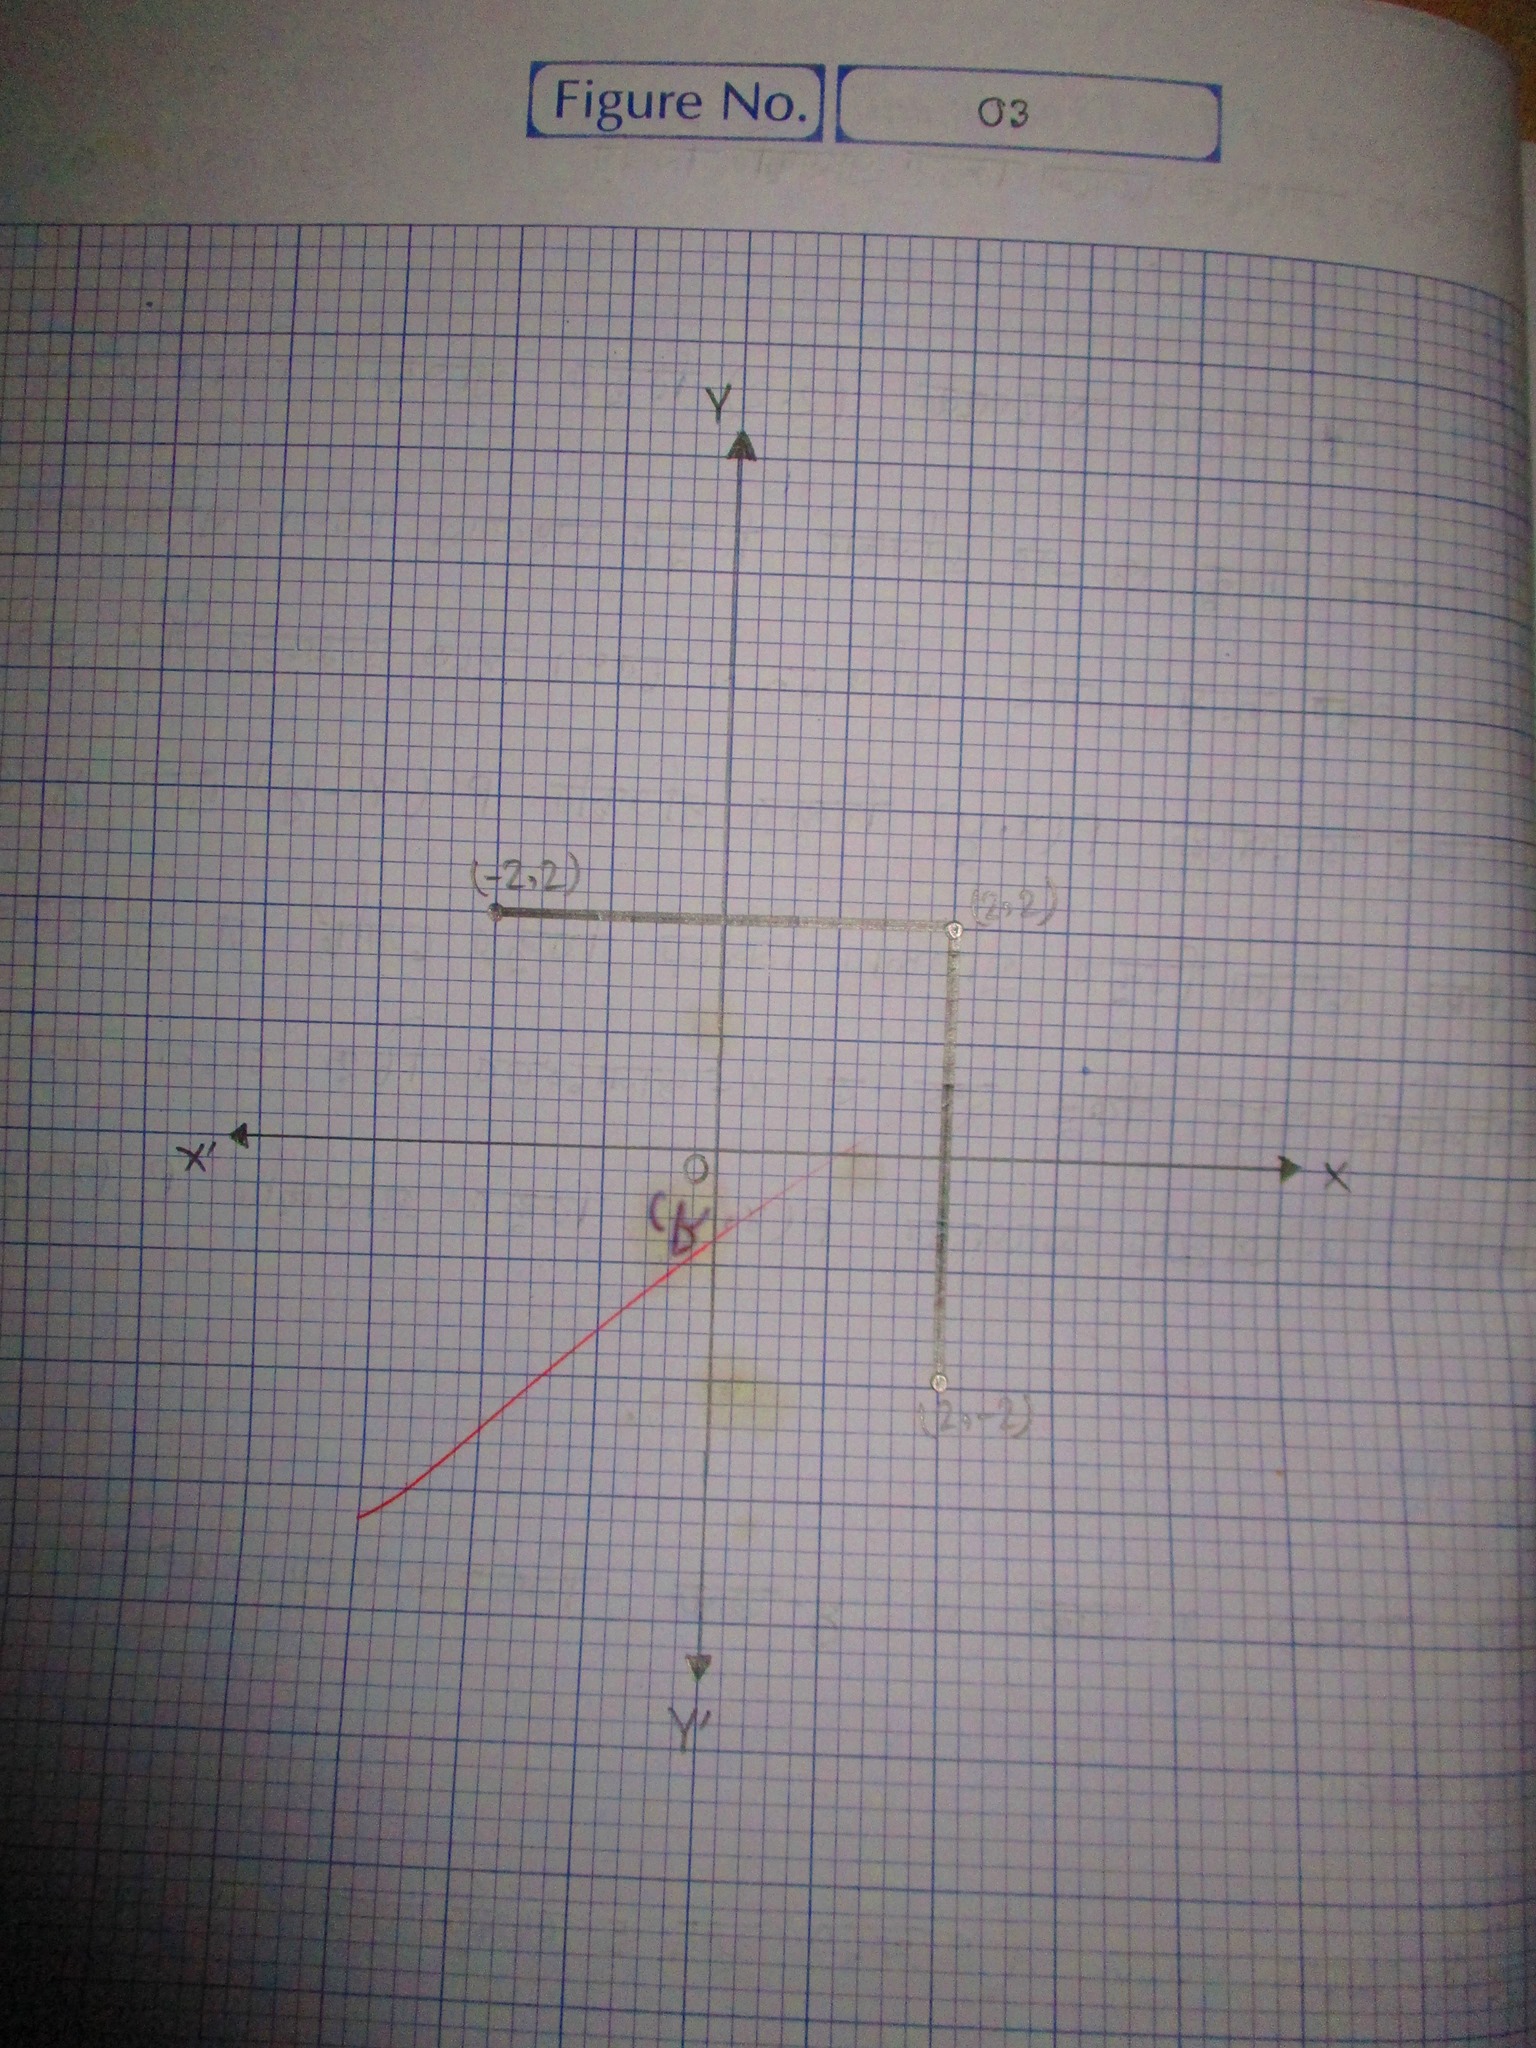 Figure No. 03
Y
(-2,2)
(2,2)
X'
O
X
(2,-2)
Y'